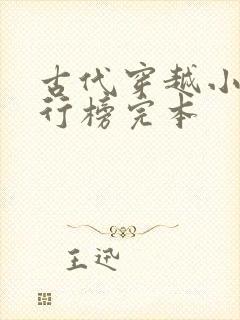 古代穿越小
行榜完本
王迅